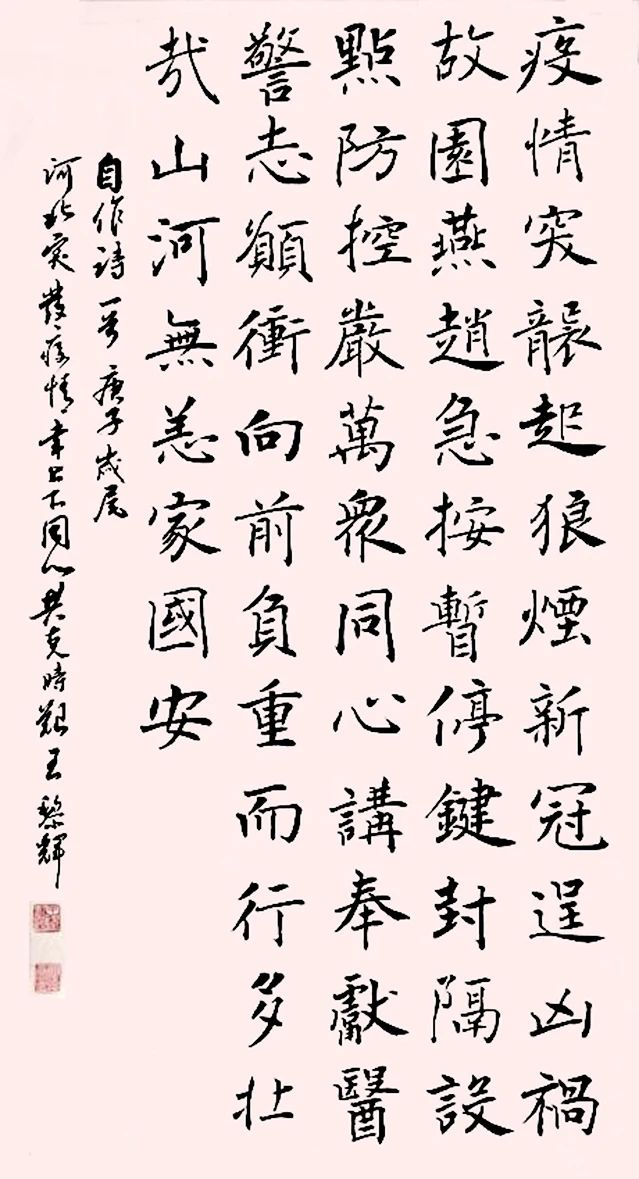 疫情突襲起狼煙新冠逞凶禍
故園燕趙急按暫停鍵封隔設
點防控嚴萬眾同心講奉獻醫
警志願衝向前負重而行多壯
哉山河無恙家國安
自作詩一首庚子歲尾
河北突發疫情幸上下同心共克時艱王黎輝